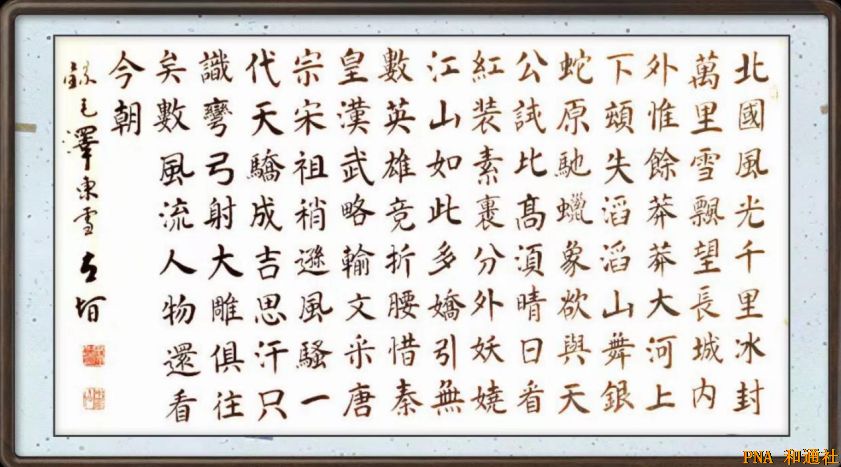 北國風光千里冰封
萬里雪飄望長城内
外惟餘莽莽大河上
下頓失滔滔山舞銀
蛇原馳蠟象欲與天
公試比高須晴日看
紅装素裹分外妖嬈
江山如此多嬌引無
數英雄竞折腰惜秦
皇漢武略輸文采唐
宗宋祖稍遜風騷一
代天驕成吉思汗只
識彎弓射大雕俱往
矣數風流人物還看
今朝
錄毛澤東雪
PNA 和通社